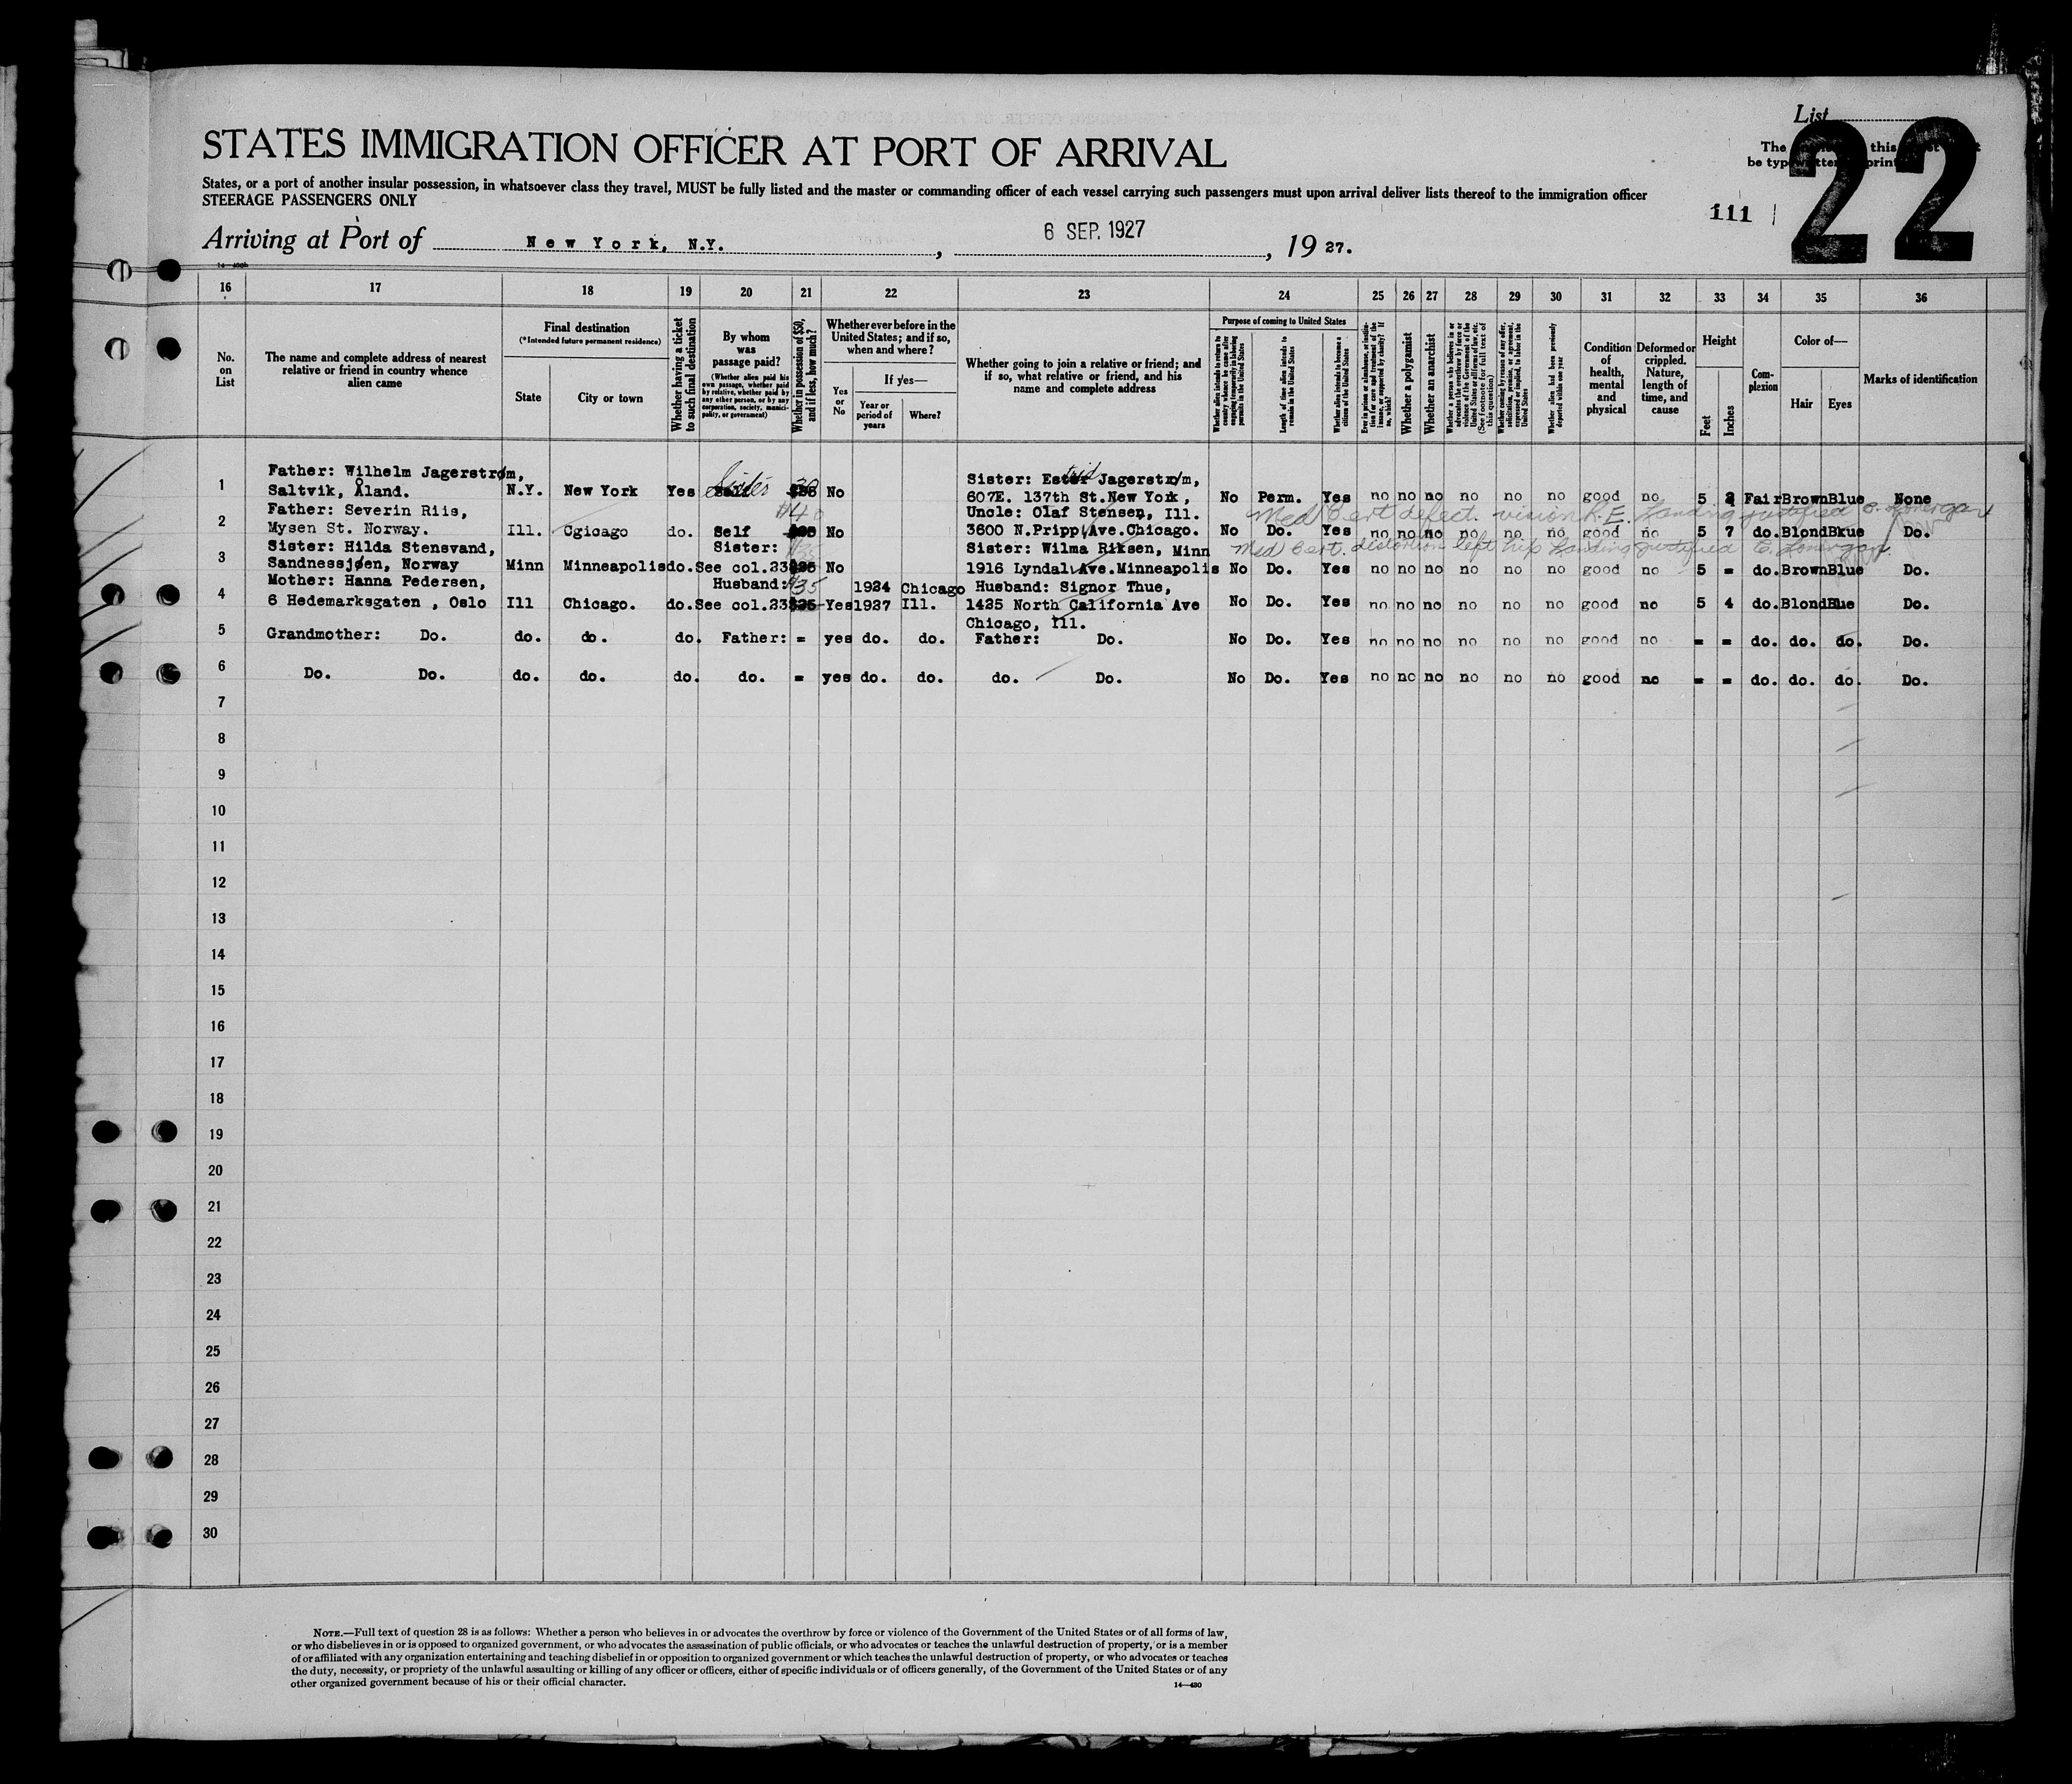 List
22
STATES IMMIGRATION OFFICER AT PORT OF ARRIVAL
The this
be typewritten print
States, or a port of another insular possession, in whatsoever class they travel, MUST be fully listed and the master or commanding officer of each vessel carrying such passengers must upon arrival deliver lists thereof to the immigration officer
STEERAGE PASSENGERS ONLY
111
Arriving at Port of New York, N.Y. , 6 SEP. 1927 , 19 27.
16 17 18 19 20 21 22 23 24 25 26 27 28 29 30 31 32 33 34 35 36
No. on List
The name and complete address of nearest relative or friend in country whence alien came
Final destination
(*Intended future permanent residence)
State
City or town
Whether having a ticket to such final destination
By whom was passage paid?
(Whether alien paid his own passage, whether paid by relative, whether paid by any other person, or by any corporation, society, municipality, or government)
Whether in possession of $50, and if less, how much?
Whether ever before in the United States; and if so, when and where?
Yes or No
If yes—
Year or period of years
Where?
Whether going to join a relative or friend; and if so, what relative or friend, and his name and complete address
Purpose of coming to United States
Length of time alien intends to remain in the United States
Whether alien intends to become a citizen of the United States
Whether a polygamist
Whether an anarchist
(See footnote for full text of this question)
Whether alien had been previously deported within one year
Condition of health, mental and physical
Deformed or crippled. Nature, length of time, and cause
Height
Feet
Inches
Complexion
Color of—
Hair
Eyes
Marks of identification
1 Father: Wilhelm Jagerstrøm,
Saltvik, Åland. N.Y. New York Yes Sister 30 No
Sister: Estrid Jagerstrøm,
607E. 137th St.New York, No Perm. Yes no no no no no no good no 5 Fair Brown Blue None
2 Father: Severin Riis,
Mysen St. Norway. Ill. Cgicago do. Self $40 No
Uncle: Olaf Stensen, Ill.
Med Cert defect. vision R.E. Landing justified E. Lonergan
3600 N.Pripp Ave.Chicago. No Do. Yes no no no no no no good no 5 7 do. Blond Bkue Do.
3 Sister: Hilda Stensvand,
Sandnessjøen, Norway Minn Minneapolis do. Sister: See col.23 No
Sister: Wilma Riksen, Minn
Med Cert. distortion left hip Landing justified E. Lonergan.
1916 Lyndal Ave.Minneapolis No Do. Yes no no no no no no good no 5 = do. Brown Blue Do.
4 Mother: Hanna Pedersen,
6 Hedemarksgaten , Oslo Ill Chicago. do. Husband: See col.23 $35 Yes 1924 1927 Chicago Ill.
Husband: Signor Thue,
1425 North California Ave No Do. Yes no no no no no no good no 5 4 do. Blond Blue Do.
Chicago, Ill.
5 Grandmother: Do. do. do. do. Father: = yes do. do. Father: Do. No Do. Yes no no no no no no good no = = do. do. do. Do.
6 Do. Do. do. do. do. do. = yes do. do. do. Do. No Do. Yes no no no no no no good no = = do. do. do. Do.
7
8
9
10
11
12
13
14
15
16
17
18
19
20
21
22
23
24
25
26
27
28
29
30
NOTE.—Full text of question 28 is as follows: Whether a person who believes in or advocates the overthrow by force or violence of the Government of the United States or of all forms of law,
or who disbelieves in or is opposed to organized government, or who advocates the assassination of public officials, or who advocates or teaches the unlawful destruction of property, or is a member
of or affiliated with any organization entertaining and teaching disbelief in or opposition to organized government or which teaches the unlawful destruction of property, or who advocates or teaches
the duty, necessity, or propriety of the unlawful assaulting or killing of any officer or officers, either of specific individuals or of officers generally, of the Government of the United States or of any
other organized government because of his or their official character.
14—430